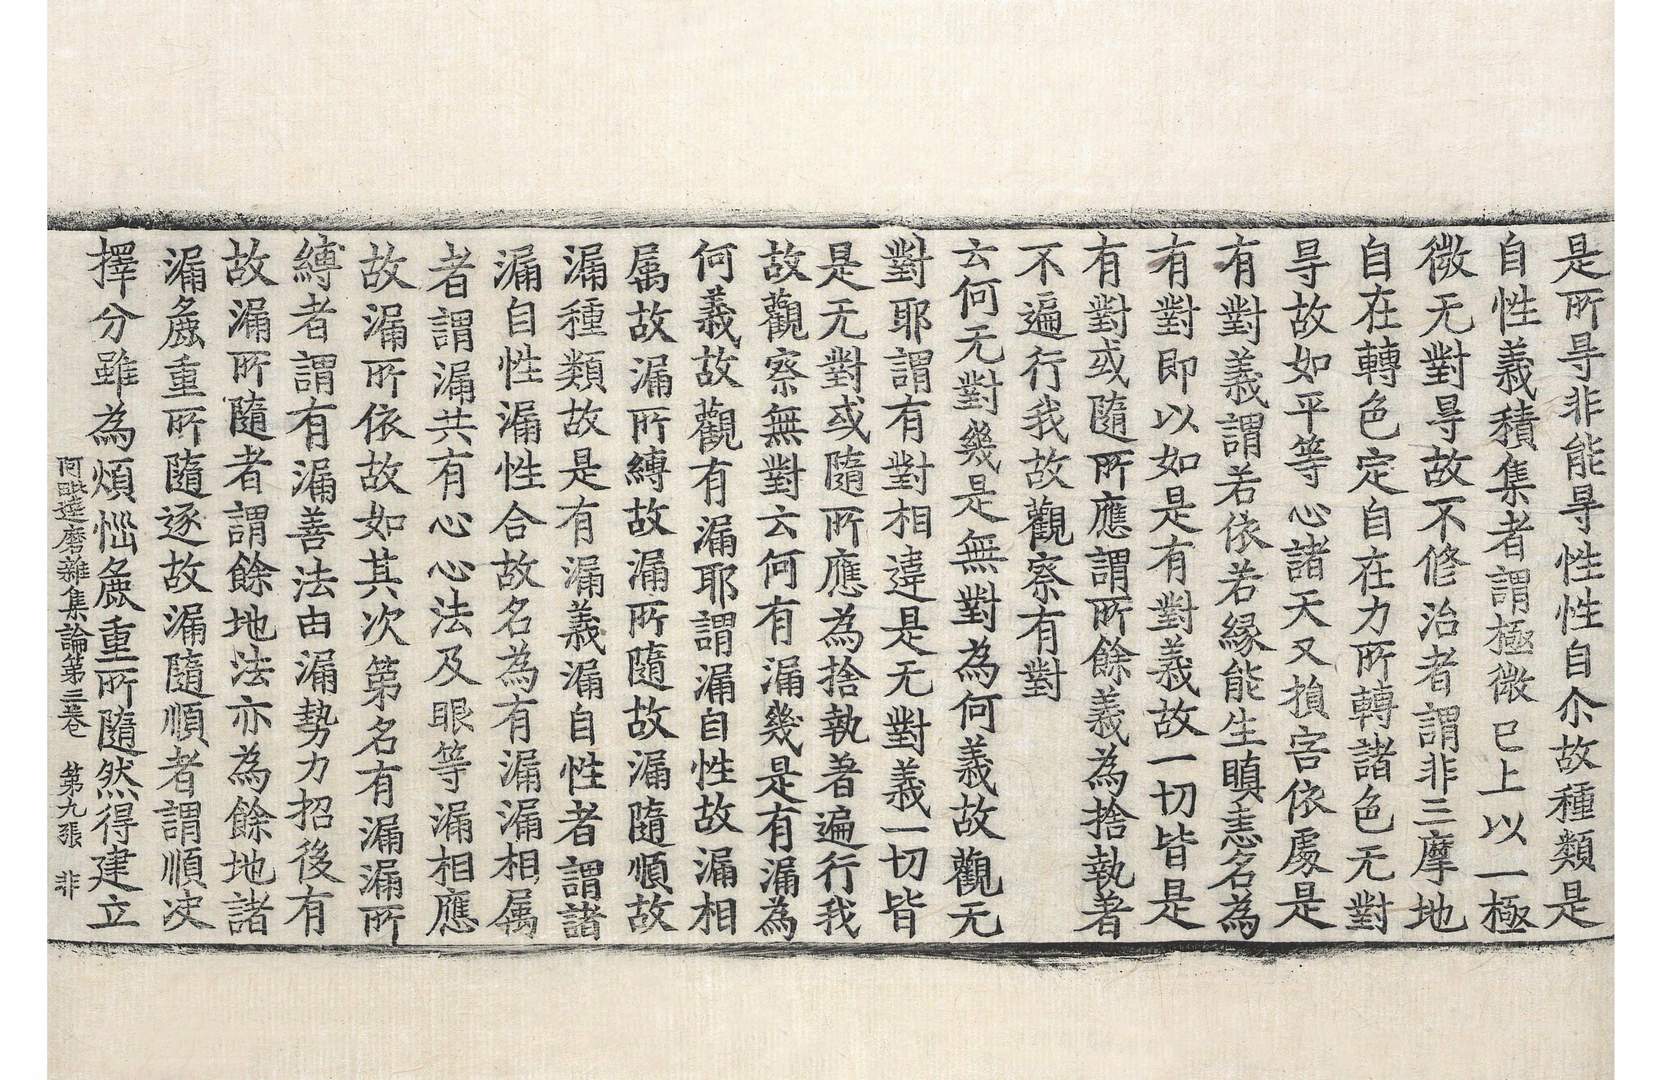 是所㝵非能㝵性性自尒故種類是
自性義積集者謂極微已上以一極
微无對㝵故不修治者謂非三摩地
自在轉色定自在力所轉諸色无對
㝵故如平等心諸天又損害依處是
有對義謂若依若緣能生瞋恚名為
有對即以如是有對義故一切皆是
有對或隨所應謂所餘義為捨執著
不遍行我故觀察有對
云何无對幾是無對為何義故觀无
對耶謂有對相違是无對義一切皆
是无對或隨所應為捨執著遍行我
故觀察無對云何有漏幾是有漏為
何義故觀有漏耶謂漏自性故漏相
属故漏所縛故漏所隨故漏隨順故
漏種類故是有漏義漏自性者謂諸
漏自性漏性合故名為有漏漏相属
者謂漏共有心心法及眼等漏相應
故漏所依故如其次第名有漏漏所
縛者謂有漏善法由漏勢力招後有
故漏所隨者謂餘地法亦為餘地諸
漏麁重所隨逐故漏隨順者謂順决
擇分雖為煩惱麁重所隨然得建立
阿毗達磨雜集論第三卷 第九張 非